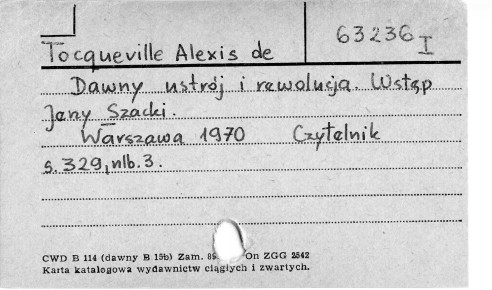 63236 I
Tocqueville Alexis de
Dawny ustrój i rewolucja. Wstęp
Jerzy Szacki.
Warszawa 1970 Czytelnik
s. 329, nlb. 3.
CWD B 114 (dawny B 15b) Zam. On ZGG 2542
Karta katalogowa wydawnictw ciągłych i zwartych.